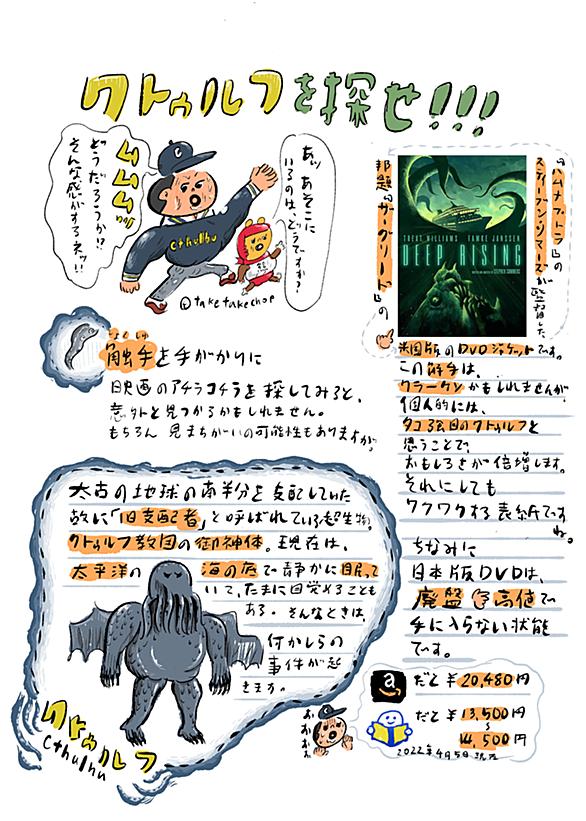 クトゥルフを探せ!!!
あッ あそこに
いるのは、どうですか?
ムムムッ
どうだろうか!?
そんな感がするネッ!!
Cthulhu
@taketakechop
『ハムナプトラ』の
スティーブン・ソマーズが
監督した、
邦題『ザ・グリード』の
TREAT WILLIAMS FAMKE JANSSEN
DEEP RISING
WRITTEN AND DIRECTED BY STEPHEN SOMMERS
米国版のDVDジャケットです。
この触手は、
クラーケンかもしれませんが
個人的には、
タコ頭のクトゥルフと
思うことで、
おもしろさが倍増します。
それにしても
ワクワクする表紙ですね。
ちなみに
日本版DVDは、
廃盤で高値で
手に入らない状態
です。
a だと ¥20,480円
だと ¥13,500円
〜
14,500円
2022年4月5日現在
しょくしゅ
触手を手がかりに
映画のアチラコチラを探してみると、
意外と見つかるかもしれません。
もちろん 見まちがいの可能性もありますが。
太古の地球の南半分を支配していた
故に「旧支配者」と呼ばれている超生物。
クトゥルフ教団の御神体。現在は、
太平洋の 海の底で静かに眠って
いて、たまに目覚めることも
ある。そんなときは、
何かしらの
事件が起
きます。
クトゥルフ
Cthulhu
おおおお